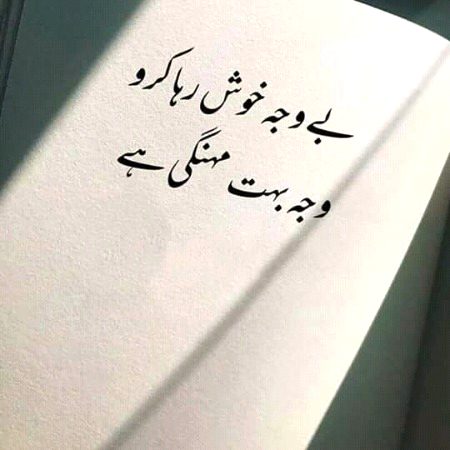 بے وجہ خوش رہا کرو
وجہ بہت مہنگی ہے